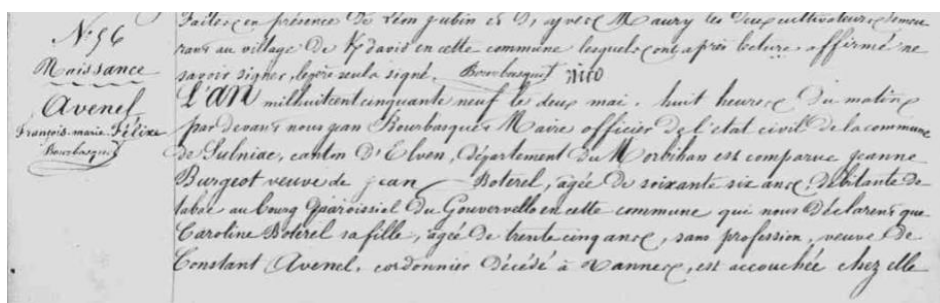 N.º 56
Naissance
Avenel
François-marie-Félixe
Bourbasquet
Faites en présence de Léon jubin et d' Maury les deux cultivateurs demeu
rans au village de Kdavis en cette commune lesquels ont après lecture affirmé ne
savoir signer, le père seul a signé. Bourbasquet
L'AN mil huit cent cinquante neuf le deux mai, huit heures du matin
par devant nous jean Bourbasquet Maire officier de l'état civil de la commune
de Sulniac, canton d'Elven, département du Morbihan est comparue jeanne
Burgeot veuve de jean Boterel, agée de soixante six ans, débitante de
tabac au bourg paroissial du Gouvervello en cette commune qui nous déclarent que
Caroline Boterel sa fille, agée de trente cinq ans, sans profession, veuve de
Constant Avenel, cordonnier décédé à Vannes, est accouchée chez elle